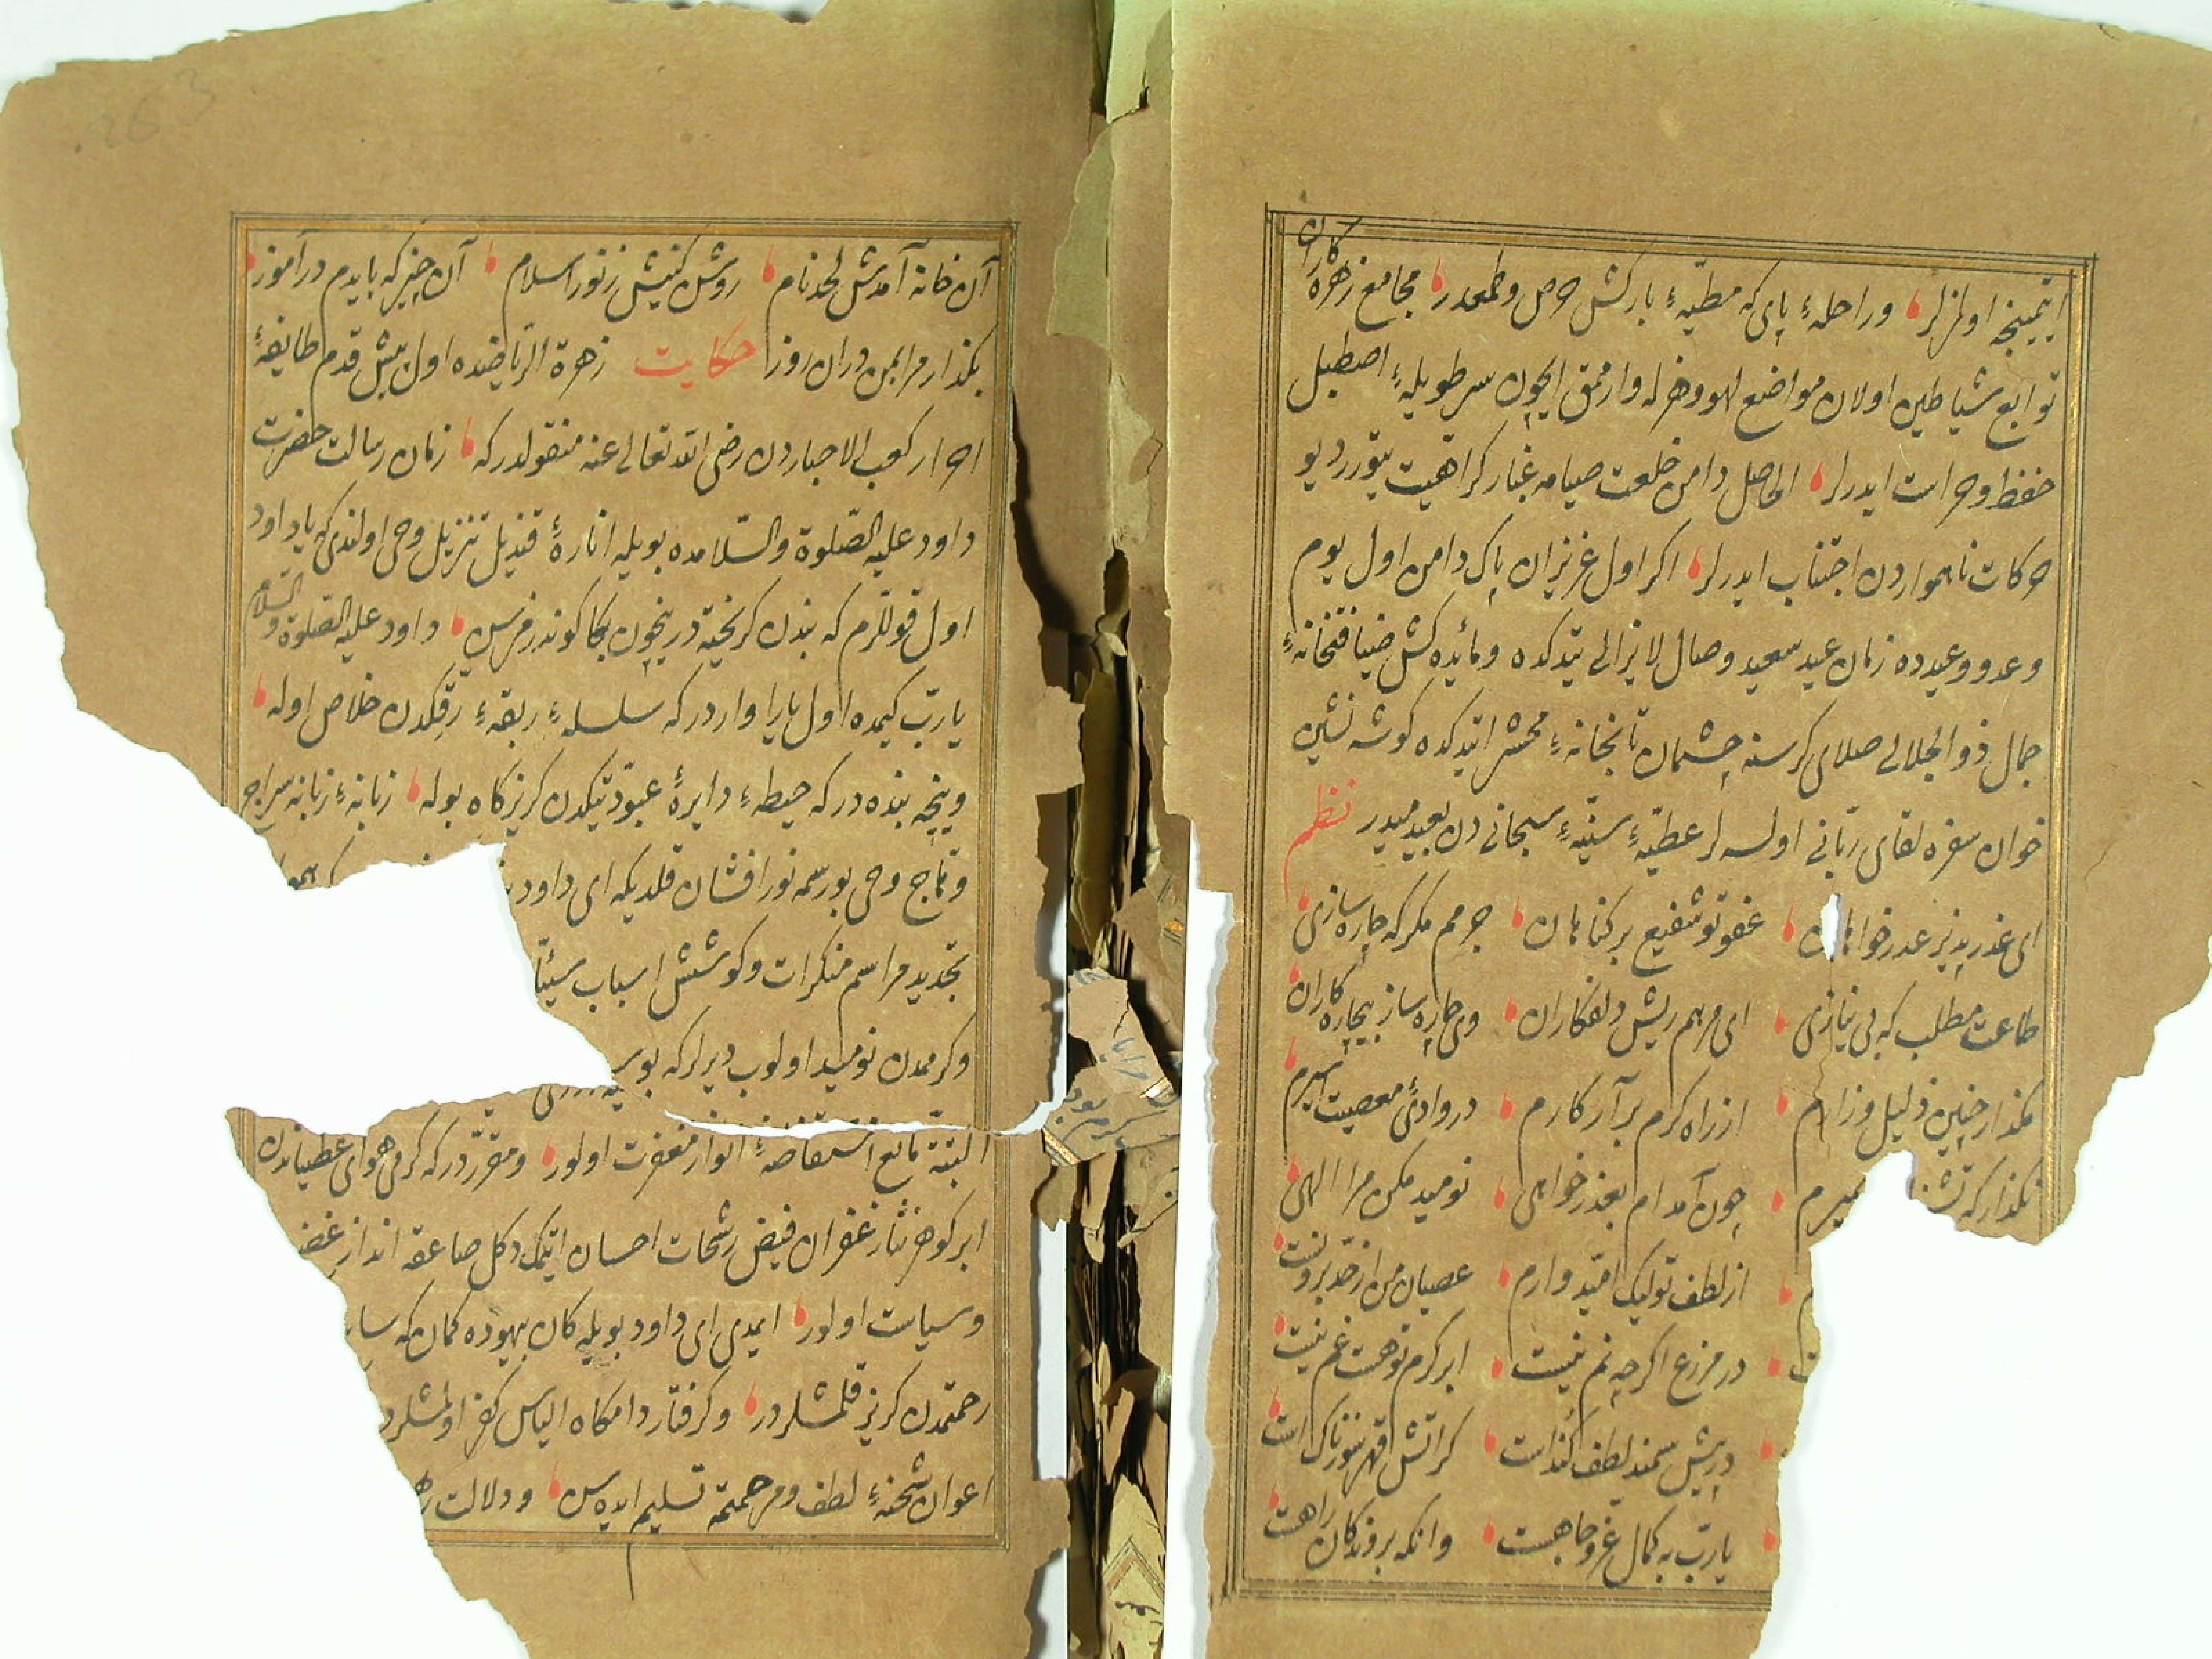 ایتمینجه اولمزلر وراحلهٔ پای که مطیهٔ بارکش حرص وطمعدر مجامع زهره کاران
توابع شیاطین اولان مواضع لهو وهزله وارمق ایچون سر طویلهٔ اصطبل
حفظ وحراست ایدرلر الحاصل دامن خلعت صیامه غبار کراهیت یتورر دیو
حرکات ناهمواردن اجتناب ایدرلر اکر اول عزیزان پاک دامن اول یوم
وعد ووعیدده زمان عید سعید وصال لایزالی یتدکده ومائده کش ضیافتخانهٔ
جمال ذو الجلالی صلای کرسنه چشمان تابخانهٔ محشر ایتدکده کوشه نشین
خوان سفره لقای ربانی اولسه لر عطیهٔ سنیهٔ سبحانی دن بعید میدر نظم
ای عذر پذیر عذر خواهان عفو تو شفیع بر کناهان جرمم مکر که چاره سازی
طاعت مطلب که بی نیازی ای مرهم ریش دلفکاران وی چاره ساز بیچاره کاران
مکذار چنین ذلیل وزارم از راه کرم بر آر کارم در وادئ معصیت اسیرم
مکذار که تشنه بمیرم چون آمده ام بعذر خواهی نومید مکن مرا الهی
از لطف تو لیک امیدوارم عصیان من از حد برونست
در مزرع اکرچه نم نیست ابر کرم تو هست غم نیست
درپیش سمند لطف کندست کر آتش قهر سوزناک است
یا رب به کمال عز و جاهت وانکه بروندکان راهت
آن خانه آمدش لحد نام روشن کنیش ز نور اسلام آن چیز که بایدم در آموز
بکذار مرا بمن در آن روز حکایت زهرة الریاضده اول پیش قدم طایفهٔ
احرار کعب الاحباردن رضی الله تعالی عنه منقولدر که زمان رسالت حضرت
داود علیه الصلوة والسلامده بویله انارهٔ قندیل تنزیل وحی اولندی که یا داود
اول قوللرم که بندن کریخته در ینچون بکا کوندرمزسن داود علیه الصلوة والسلام
یا رب کیمده اول یارا وارد رکه سلسلهٔ ربقهٔ رقکدن خلاص اوله
وینچه بنده در که حیطهٔ دایرهٔ عبودیتکدن کریزکاه بوله زبانهٔ زبانه سراج
وتاج وحی بو رسمه نور افشان قلدیکه ای داود
تجدید مراسم منکرات وکوشش اسباب سیئا
وکرممدن نومید اولوب دیرلر که بو
البته مانع استفاضهٔ انوار مغفرت اولور ومقرر در که کرمی هوای عطیاتدن
ابر کوهر نثار غفران فیض رشحات احسان ایتمک دکل صاعقه انداز غضـ
وسیاست اولور ایمدی ای داود بویله کان بیهوده کمان که سا
رحمتمدن کریز قلمشلردر وکرفتار دامکاه الیاس کفر اولمشلرد
اعوان شحنهٔ لطف ومرحمته تسلیم ایده سن ودلالت